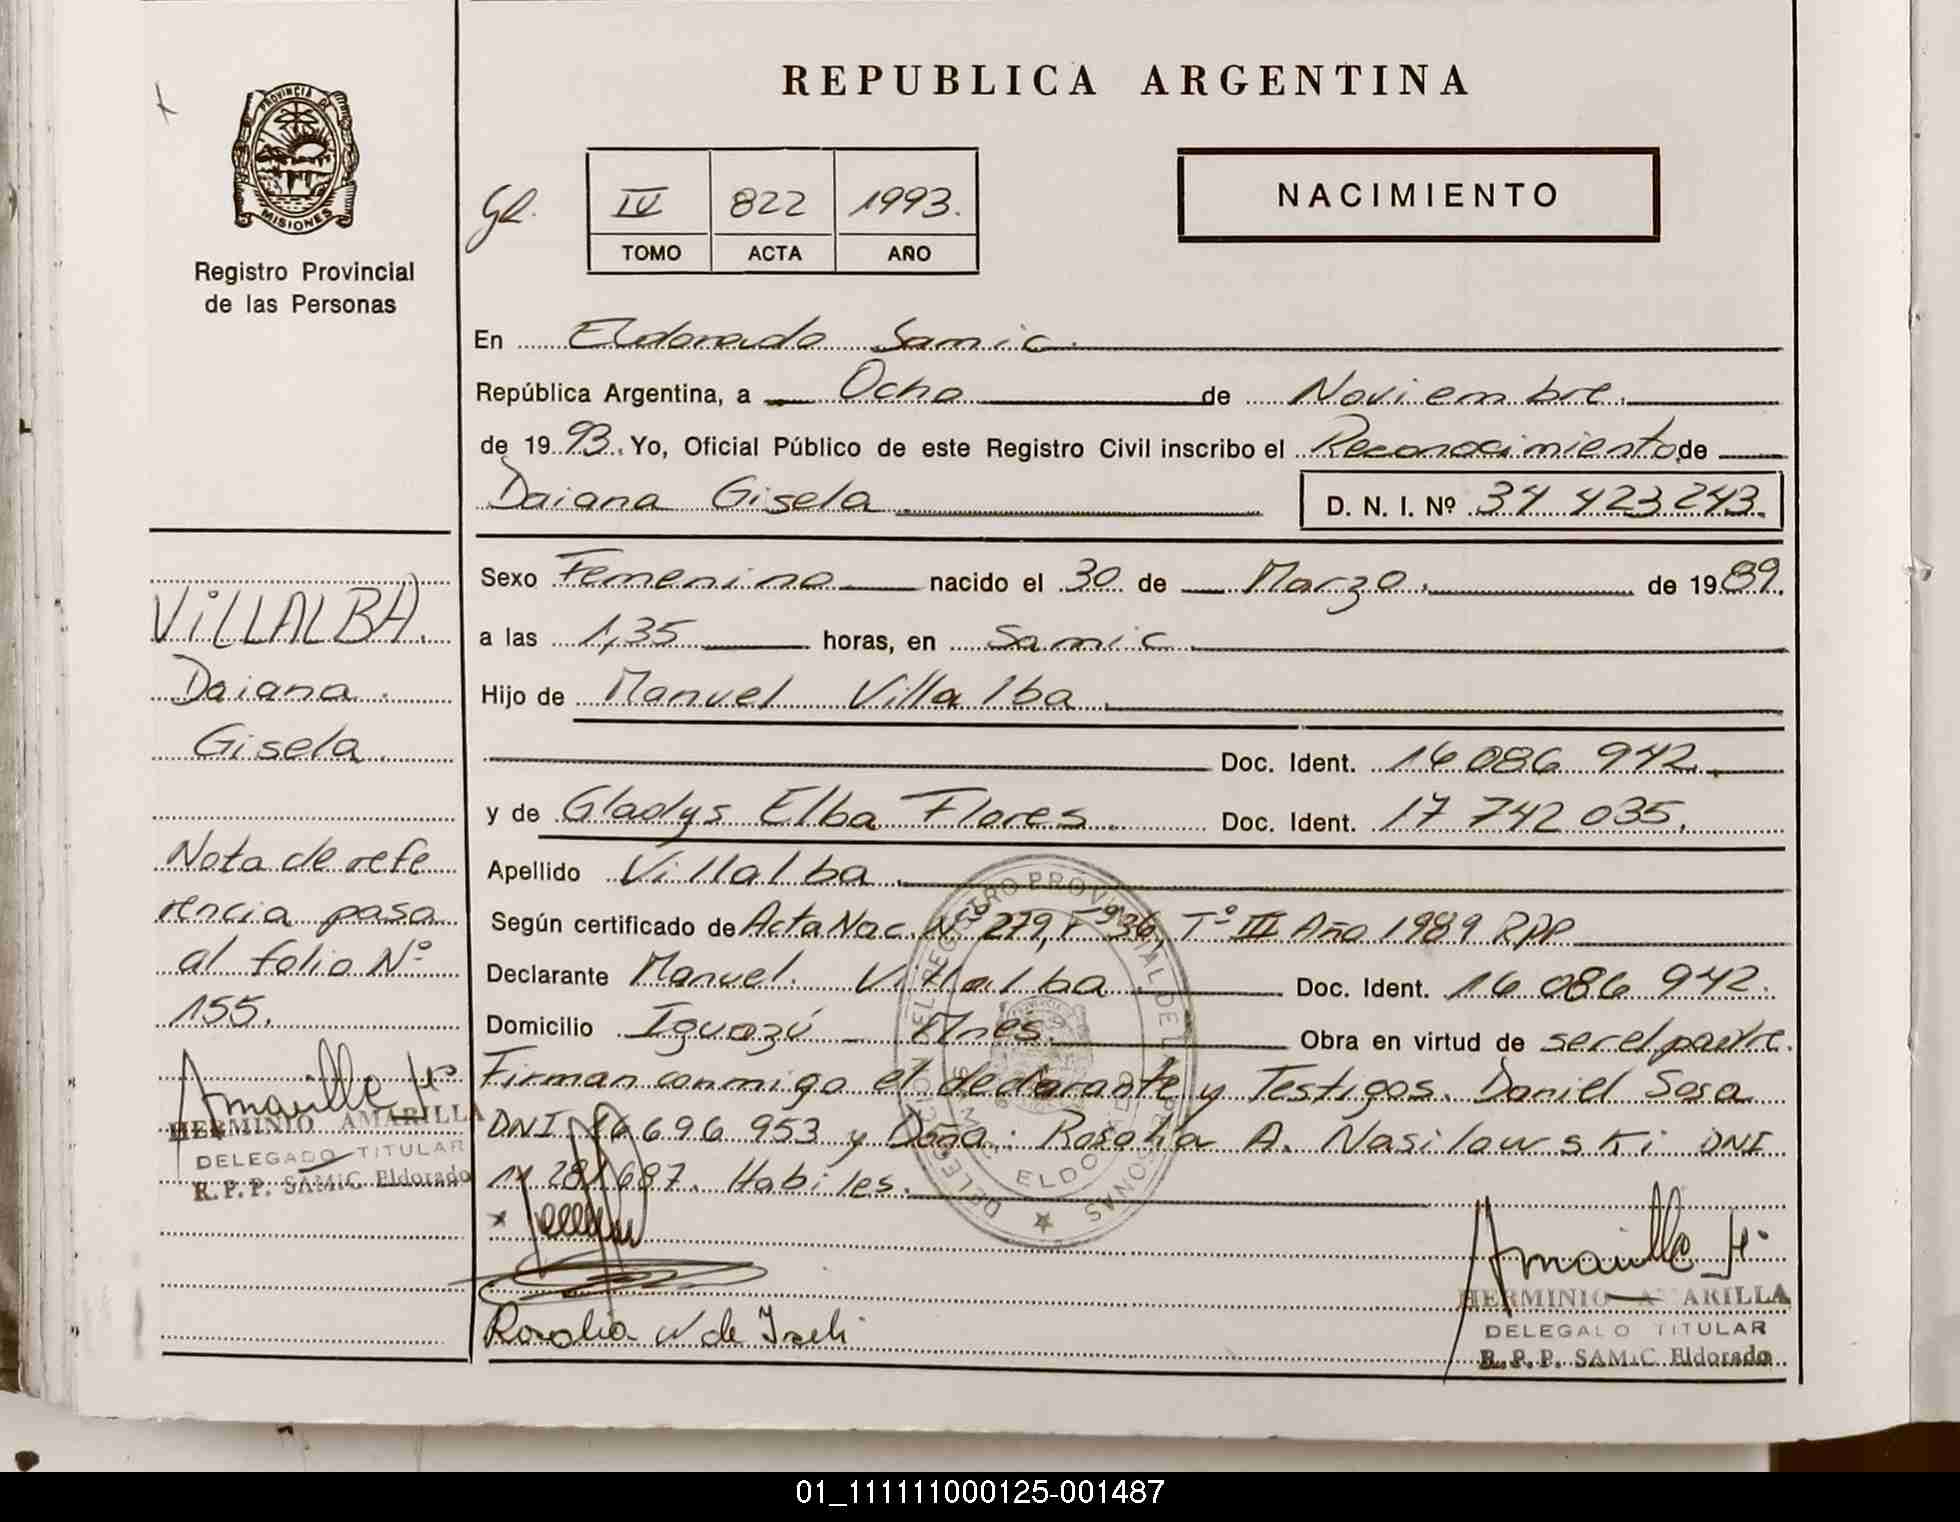 REPUBLICA ARGENTINA
PROVINCIA DE
MISIONES
Registro Provincial
de las Personas
IV 822 1993.
TOMO ACTA AÑO
NACIMIENTO
En Eldorado Samic.
República Argentina, a Ocho de Noviembre.
de 19 93. Yo, Oficial Público de este Registro Civil inscribo el Reconocimiento de
Daiana Gisela D. N. I. Nº 34 423 243.
Sexo Femenino nacido el 30 de Marzo. de 19 89.
a las 1,35 horas, en Samic.
Hijo de Manuel Villalba.
Doc. Ident. 16 086 942.
y de Gladys Elba Flores. Doc. Ident. 17 742 035.
Apellido Villalba.
Según certificado de Acta Nac. Nº 279, Fº 36, Tº III Año 1989 RPP
Declarante Manuel. Villalba Doc. Ident. 16 086 942.
Domicilio Iguazú - Mnes. Obra en virtud de ser el padre.
Firman conmigo el declarante y Testigos. Daniel Sosa
DNI 16 696 953 y Doña: Rosalia A. Nasilowski DNI
11 281 687. Habiles.
Rosalia N de Iseli
HERMINIO AMARILLA
DELEGADO TITULAR
R. P. P. SAMIC Eldorado
VILLALBA.
Daiana.
Gisela.
Nota de refe
rencia pasa
al folio Nº
155.
Amarilla H.
HERMINIO AMARILLA
DELEGADO TITULAR
R. P. P. SAMIC Eldorado
01_111111000125-001487